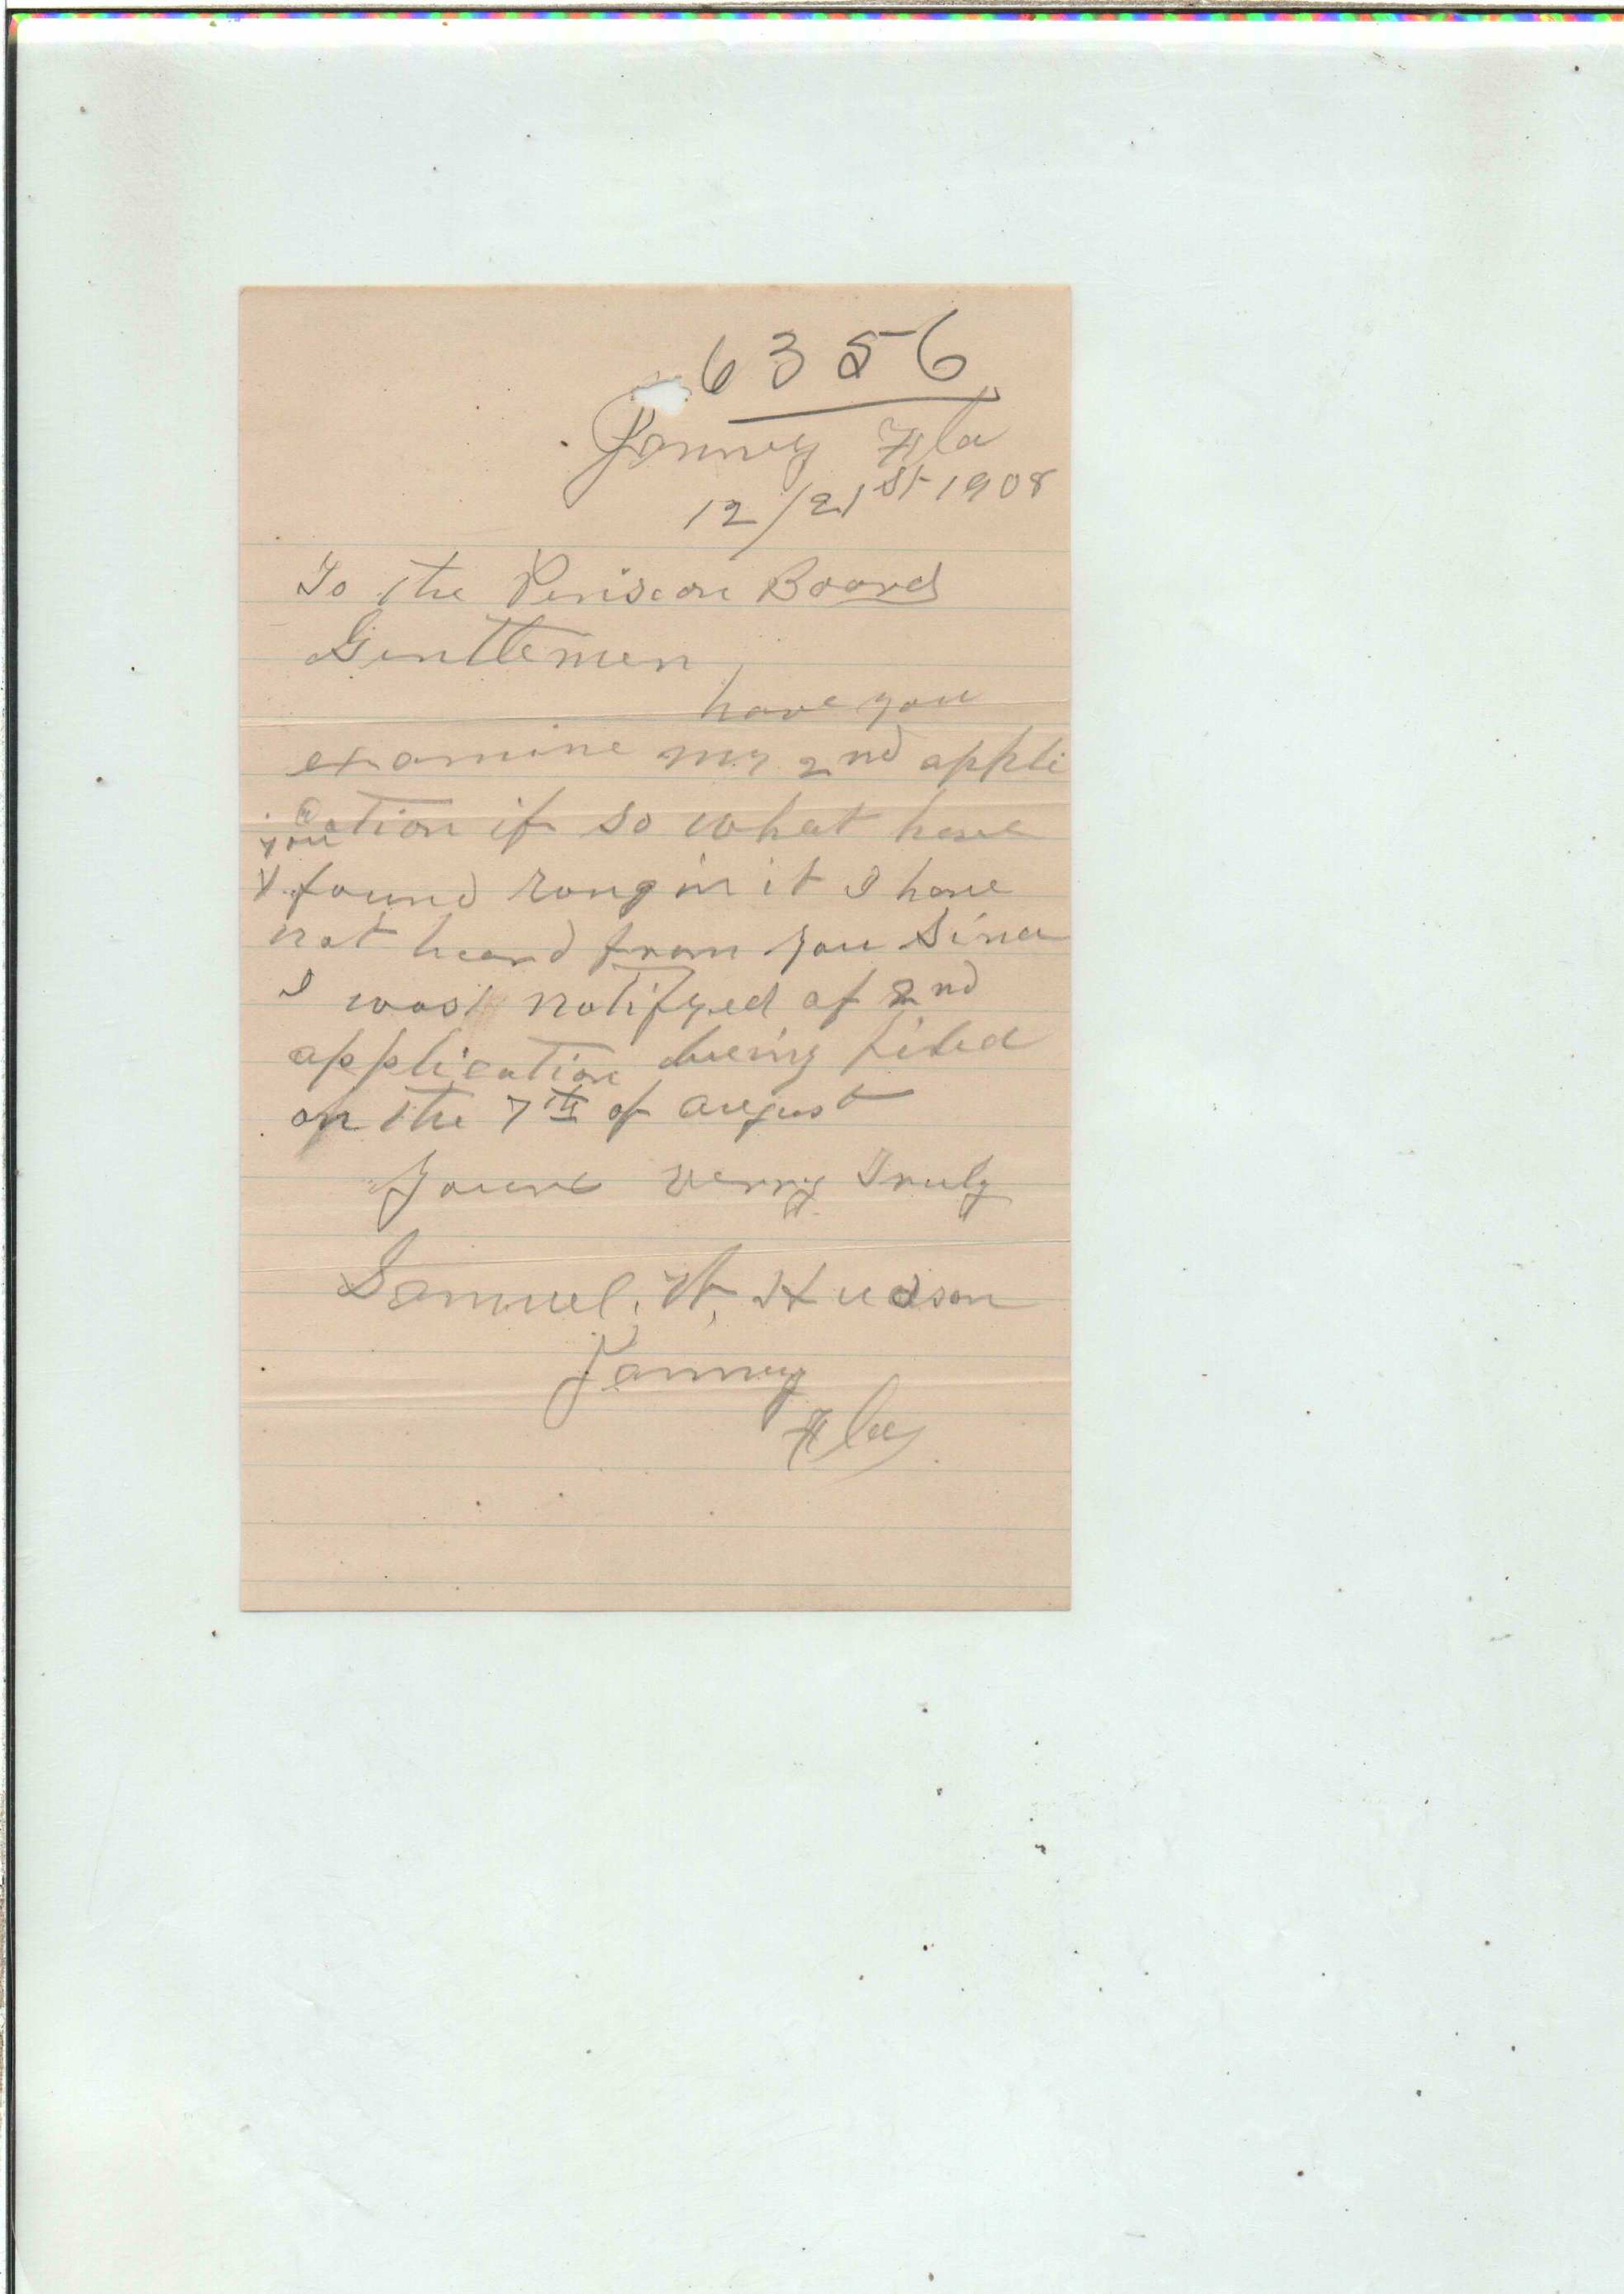 6356
Janney Fla
12/21st 1908
To the Penision Board
Genttemen,
have you
examine my 2nd appli
cation if so what have
you
found rong in it I have
not heard from you Since
I was notifyed of 2nd
application being filed
on the 7th of august
Yours verry Truly
Samuel, W, Hudson
Janney
Fla,